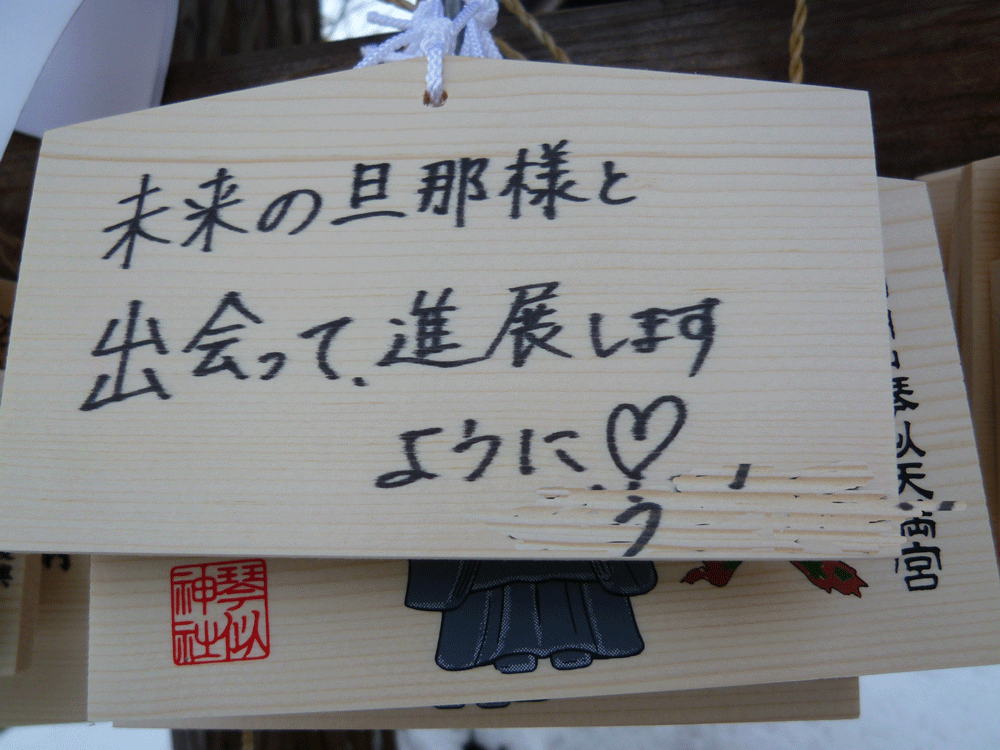 未来の旦那様と
出会って、進展します
ように♡
う
琴似天満宮
琴似
神社